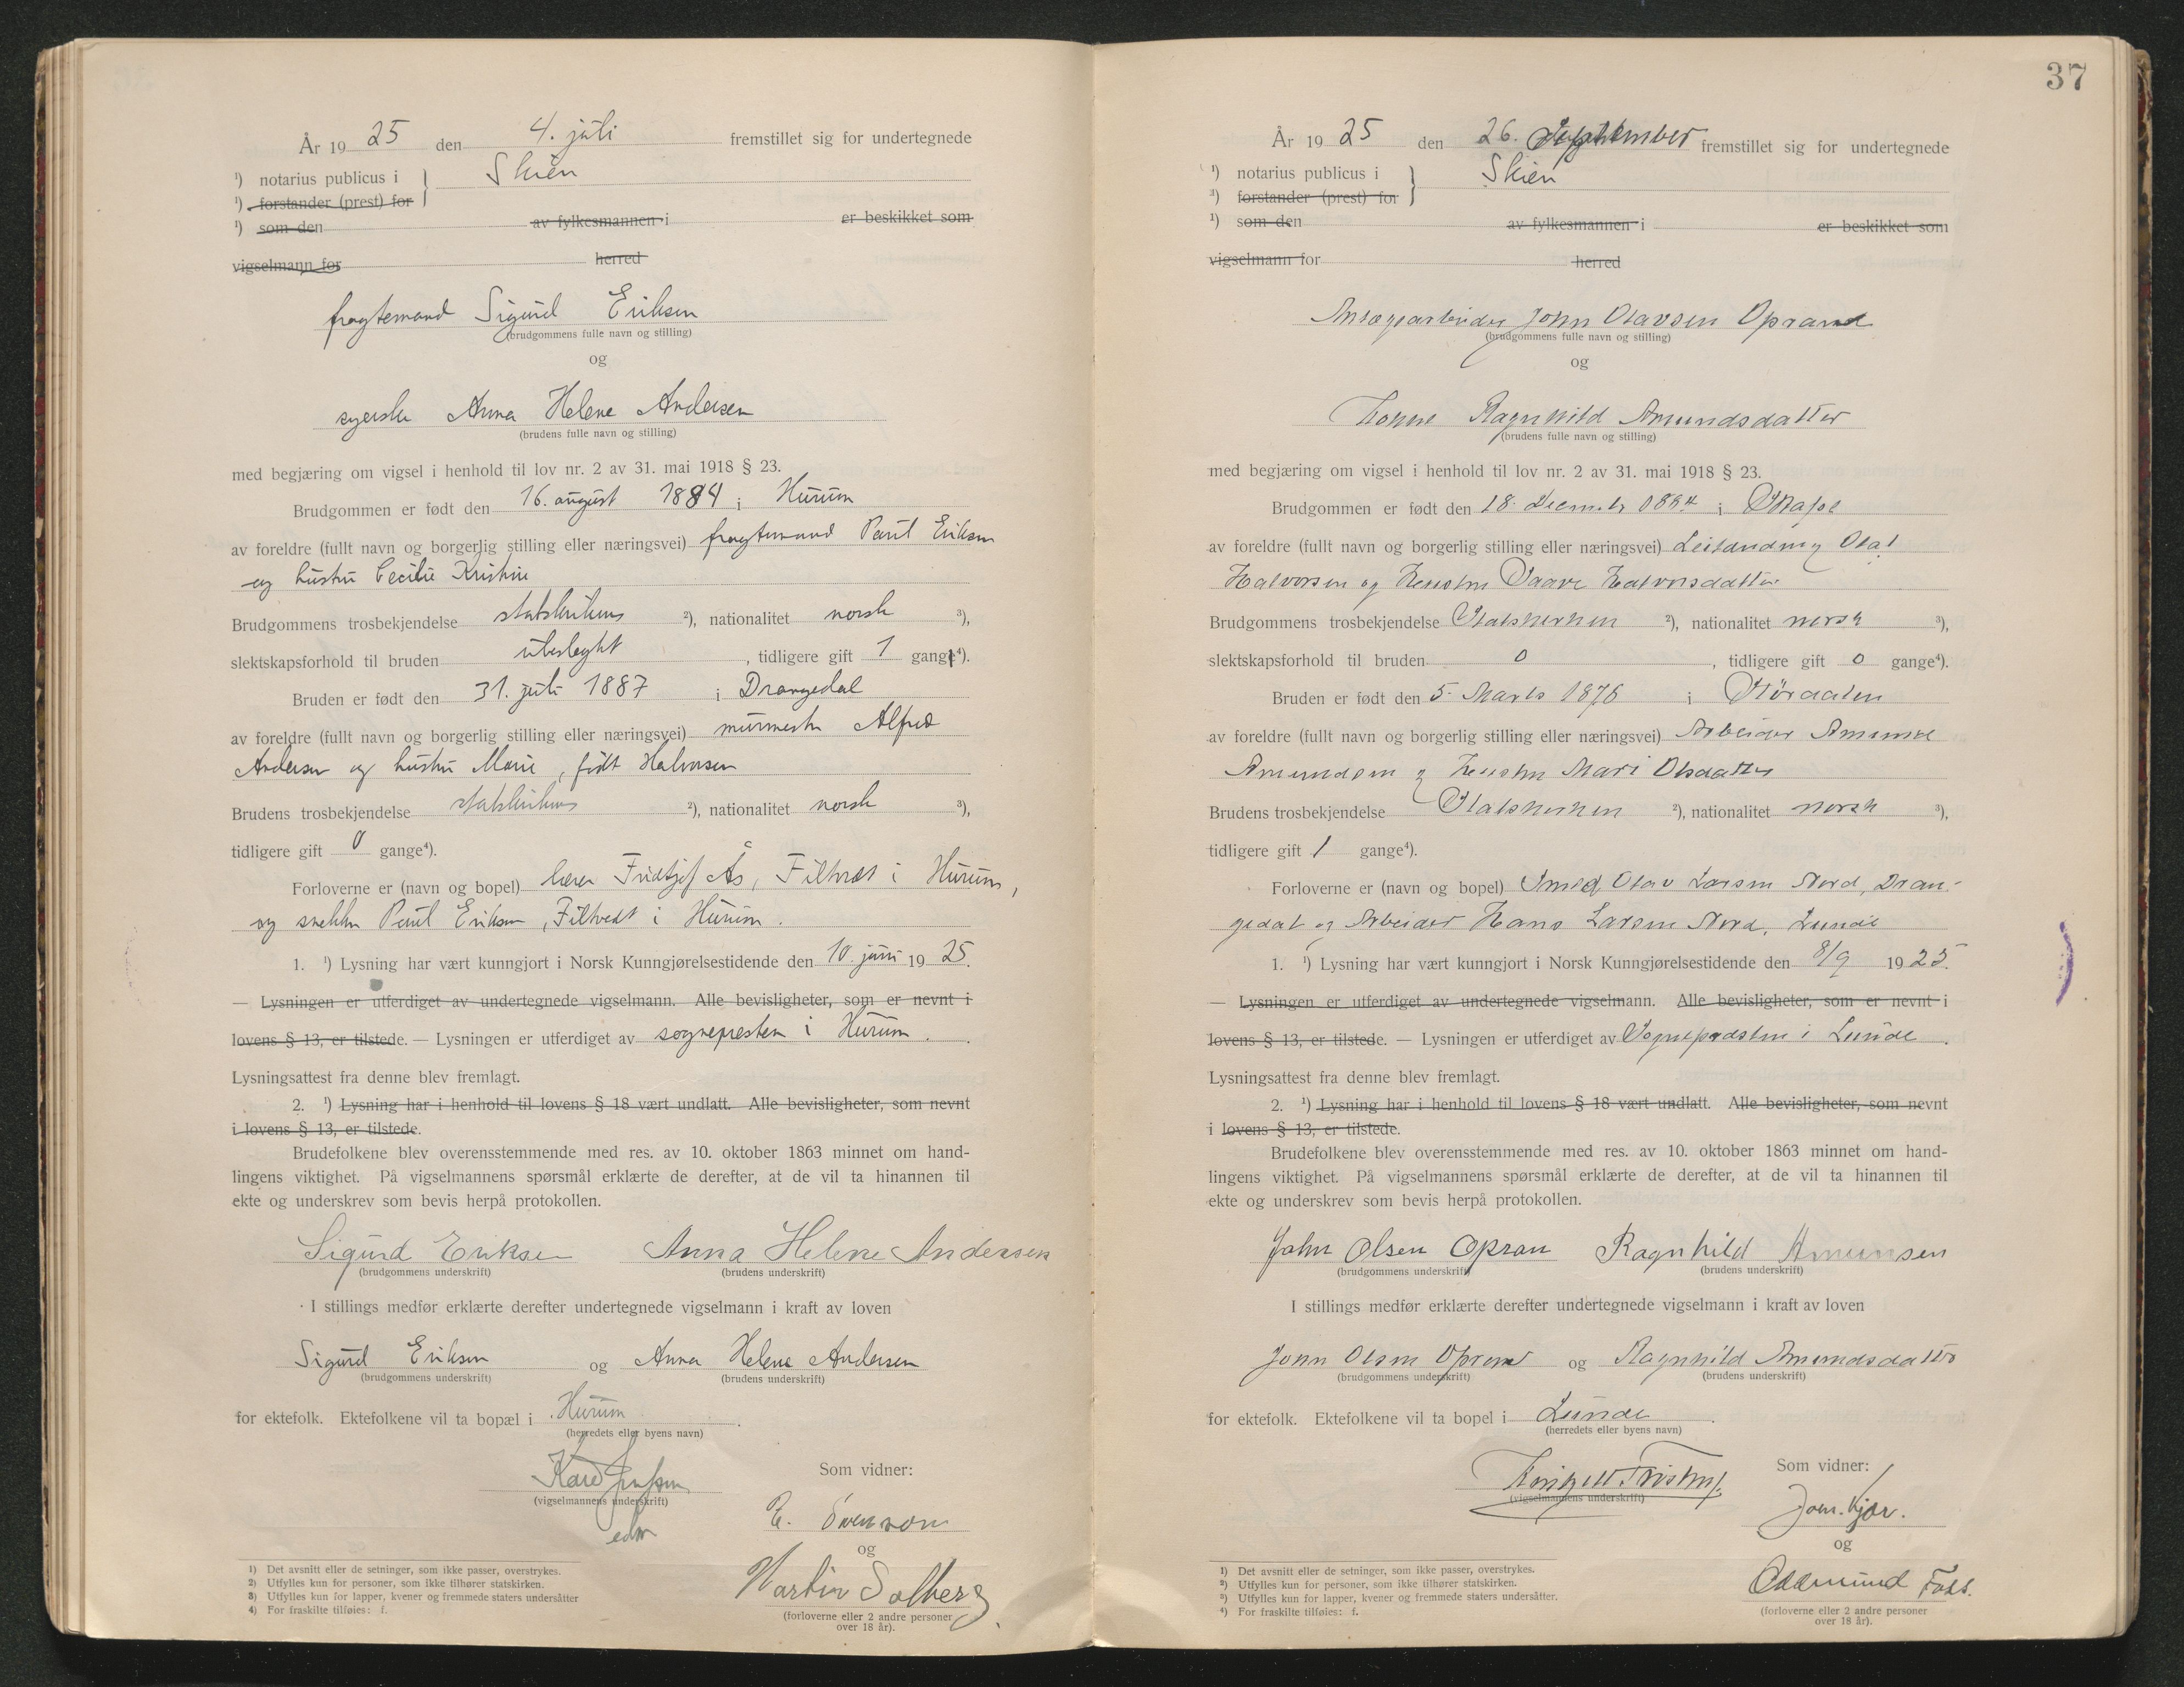 År 19 25 den 4. juli fremstillet sig for undertegnede
¹) notarius publicus i } Skien
¹) forstander (prest) for
¹) som den av fylkesmannen i er beskikket som
vigselmann for herred
fragtemand Sigurd Eriksen
(brudgommens fulle navn og stilling)
og
syerske Anna Helene Andersen
(brudens fulle navn og stilling)
med begjæring om vigsel i henhold til lov nr. 2 av 31. mai 1918 § 23.
Brudgommen er født den 16. august 1884 i Hurum
av foreldre (fullt navn og borgerlig stilling eller næringsvei) fragtemand Paul Eriksen
og hustru Cecilie Kristine
Brudgommens trosbekjendelse statskirkens ²), nationalitet norsk ³),
slektskapsforhold til bruden ubeslegtet, tidligere gift 1 gang⁴).
Bruden er født den 31. juli 1887 i Drangedal
av foreldre (fullt navn og borgerlig stilling eller næringsvei) murmester Alfred
Andersen og hustru Marie, født Halvorsen
Brudens trosbekjendelse statskirkens ²), nationalitet norsk ³),
tidligere gift 0 gange⁴).
Forloverne er (navn og bopel) lærer Fridtjof Ås, Filtvet i Hurum,
og snekker Paul Eriksen, Filtvedt i Hurum.
1. ¹) Lysning har vært kunngjort i Norsk Kunngjørelsestidende den 10. juni 19 25.
— Lysningen er utferdiget av undertegnede vigselmann. Alle bevisligheter, som er nevnt i
lovens § 13, er tilstede. — Lysningen er utferdiget av sognepresten i Hurum.
Lysningsattest fra denne blev fremlagt.
2. ¹) Lysning har i henhold til lovens § 18 vært undlatt. Alle bevisligheter, som nevnt
i lovens § 13, er tilstede.
Brudefolkene blev overensstemmende med res. av 10. oktober 1863 minnet om hand-
lingens viktighet. På vigselmannens spørsmål erklærte de derefter, at de vil ta hinannen til
ekte og underskrev som bevis herpå protokollen.
Sigurd Eriksen Anna Helene Andersen
(brudgommens underskrift) (brudens underskrift)
I stillings medfør erklærte derefter undertegnede vigselmann i kraft av loven
Sigurd Eriksen og Anna Helene Andersen
(brudgommens underskrift) (brudens underskrift)
for ektefolk. Ektefolkene vil ta bopæl i Hurum.
(herredets eller byens navn)
Som vidner:
(vigselmannens underskrift)
E. Svenson
og
Martin Solberg
(forloverne eller 2 andre personer
over 18 år).
1) Det avsnitt eller de setninger, som ikke passer, overstrykes.
2) Utfylles kun for personer, som ikke tilhører statskirken.
3) Utfylles kun for lapper, kvener og fremmede staters undersåtter
4) For fraskilte tilføies: f.
37
År 19 25 den 26. September fremstillet sig for undertegnede
¹) notarius publicus i } Skien
²) forstander (prest) for
¹) som den av fylkesmannen i er beskikket som
vigselmann for herred
Anlægsarbeider John Olavsen Oprand
(brudgommens fulle navn og stilling)
og
Ragnhild Amundsdatter
(brudens fulle navn og stilling)
med begjæring om vigsel i henhold til lov nr. 2 av 31. mai 1918 § 23.
Brudgommen er født den 18. Decemb. 1884 i Skafse
av foreldre (fullt navn og borgerlig stilling eller næringsvei) Leilænding Olaf
Halvorsen og Hustru Haavr Halvorsdatter
Brudgommens trosbekjendelse Statskirken ²), nationalitet norsk ³),
slektskapsforhold til bruden 0, tidligere gift 0 gange⁴).
Bruden er født den 5. Marts 1876 i Hørdalen
av foreldre (fullt navn og borgerlig stilling eller næringsvei) Arbeider Amund
Amundsen og Hustru Mari Olsdatter
Brudens trosbekjendelse Statskirken ²), nationalitet norsk ³),
tidligere gift 1 gange⁴).
Forloverne er (navn og bopel) Smed Olav Larsen Nord, Dran-
gedal og Arbeider Hans Larsen Nord, Lunde
1. ¹) Lysning har vært kunngjort i Norsk Kunngjørelsestidende den 8/9 19 25.
— Lysningen er utferdiget av undertegnede vigselmann. Alle bevisligheter, som er nevnt i
lovens § 13, er tilstede. — Lysningen er utferdiget av Sognepræsten i Lunde.
Lysningsattest fra denne blev fremlagt.
2. ¹) Lysning har i henhold til lovens § 18 vært undlatt. Alle bevisligheter, som nevnt
i lovens § 13, er tilstede.
Brudefolkene blev overensstemmende med res. av 10. oktober 1863 minnet om hand-
lingens viktighet. På vigselmannens spørsmål erklærte de derefter, at de vil ta hinannen til
ekte og underskrev som bevis herpå protokollen.
John Olsen Opran Ragnhild Amunsen
(brudgommens underskrift) (brudens underskrift)
I stillings medfør erklærte derefter undertegnede vigselmann i kraft av loven
John Olsen Oprand og Ragnhild Amundsdatter
(brudgommens underskrift) (brudens underskrift)
for ektefolk. Ektefolkene vil ta bopel i Lunde.
(herredets eller byens navn)
Som vidner:
(vigselmannens underskrift)
Joh. Kjær.
og
Oddmund Foss.
(forloverne eller 2 andre personer
over 18 år).
1) Det avsnitt eller de setninger, som ikke passer, overstrykes.
²) Utfylles kun for personer, som ikke tilhører statskirken.
³) Utfylles kun for lapper, kvener og fremmede staters undersåtter.
⁴) For fraskilte tilføies: f.